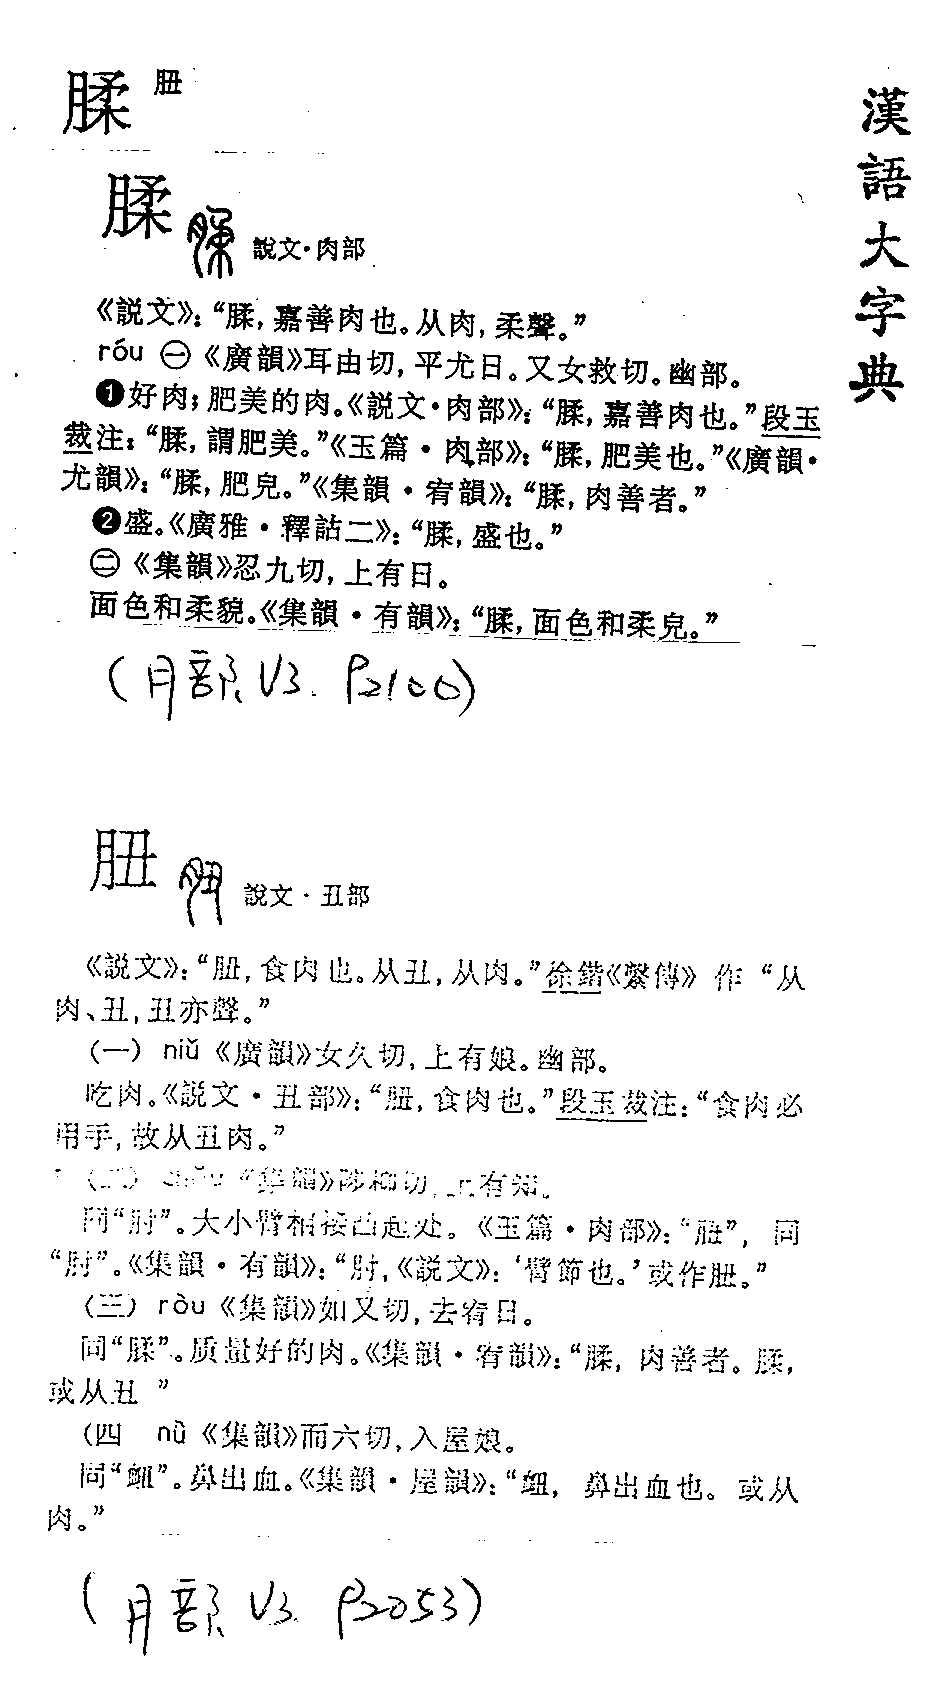 漢語大字典
腬 䏔
腬 說文·肉部
《説文》：“腬，嘉善肉也。从肉，柔聲。”
róu ㊀《廣韻》耳由切，平尤日。又女救切。幽部。
❶好肉；肥美的肉。《説文·肉部》：“腬，嘉善肉也。”段玉
裁注：“腬，謂肥美。”《玉篇·肉部》：“腬，肥美也。”《廣韻·
尤韻》：“腬，肥皃。”《集韻·宥韻》：“腬，肉善者。”
❷盛。《廣雅·釋詁二》：“腬，盛也。”
㊁《集韻》忍九切，上有日。
面色和柔貌。《集韻·有韻》：“腬，面色和柔皃。”
(月部 V3. P2100)
䏔 說文·丑部
《説文》：“䏔，食肉也。从丑，从肉。”徐鍇《繫傳》作“从
肉、丑，丑亦聲。”
（一）niǔ《廣韻》女久切，上有娘。幽部。
吃肉。《説文·丑部》：“䏔，食肉也。”段玉裁注：“食肉必
用手，故从丑肉。”
《集韻》陟柳切，上有知。
同“肘”。大小臂相接凸起处。《玉篇·肉部》：“䏔”，同
“肘”。《集韻·有韻》：“肘，《説文》：‘臂節也。’或作䏔。”
（三）ròu《集韻》如又切，去宥日。
同“腬”。质量好的肉。《集韻·宥韻》：“腬，肉善者。腬，
或从丑 ”
（四 nǜ《集韻》而六切，入屋娘。
同“衄”。鼻出血。《集韻·屋韻》：“衄，鼻出血也。或从
肉。”
(月部 V3. P2053)